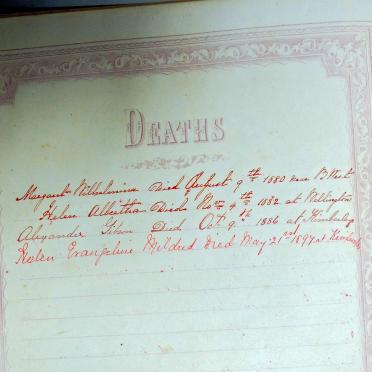 DEATHS
Margaret Wilhelmina Died August 9th 1880 near B. West
Helen Albertha Died Novr 4th 1882 at Wellington
Alexander Gibson Died Oct 9th 1886 at Kimberley
Helen Evangeline Mildred Died May 21st 1897 at